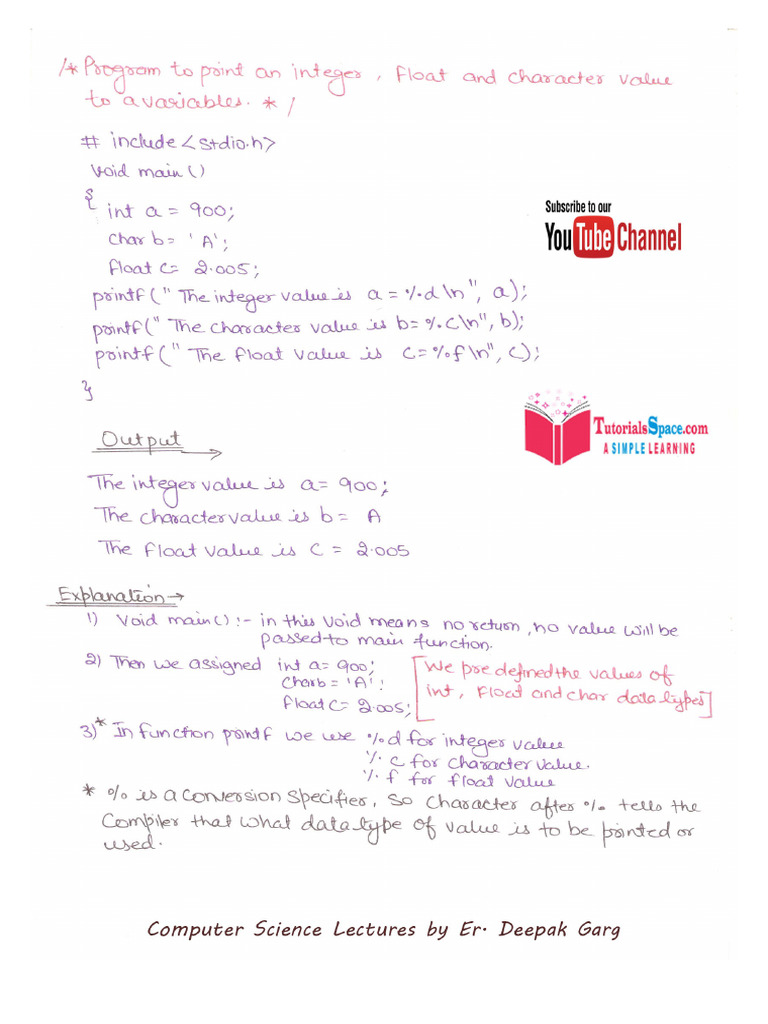 /* Program to print an integer, float and character value
to a variables. */
# include <stdio.h>
void main()
{
int a = 900;
char b = 'A';
float c = 2.005;
printf(" The integer value is a = %d \n", a);
printf(" The character value is b = %c\n", b);
printf(" The float value is c = %f \n", c);
}
Subscribe to our
YouTube Channel
TutorialsSpace.com
A SIMPLE LEARNING
Output
The integer value is a = 900;
The character value is b = A
The float value is c = 2.005
Explanation →
1) Void main() :- in this void means no return, no value will be
passed to main function.
2) Then we assigned int a = 900;
Char b = 'A';
float c = 2.005;
[We pre defined the values of
int, float and char data types]
3)* In function printf we use %d for integer value
% c for character value.
% f for float value
* % is a conversion specifier, so character after % tells the
compiler that what data type of value is to be printed or
used.
Computer Science Lectures by Er. Deepak Garg